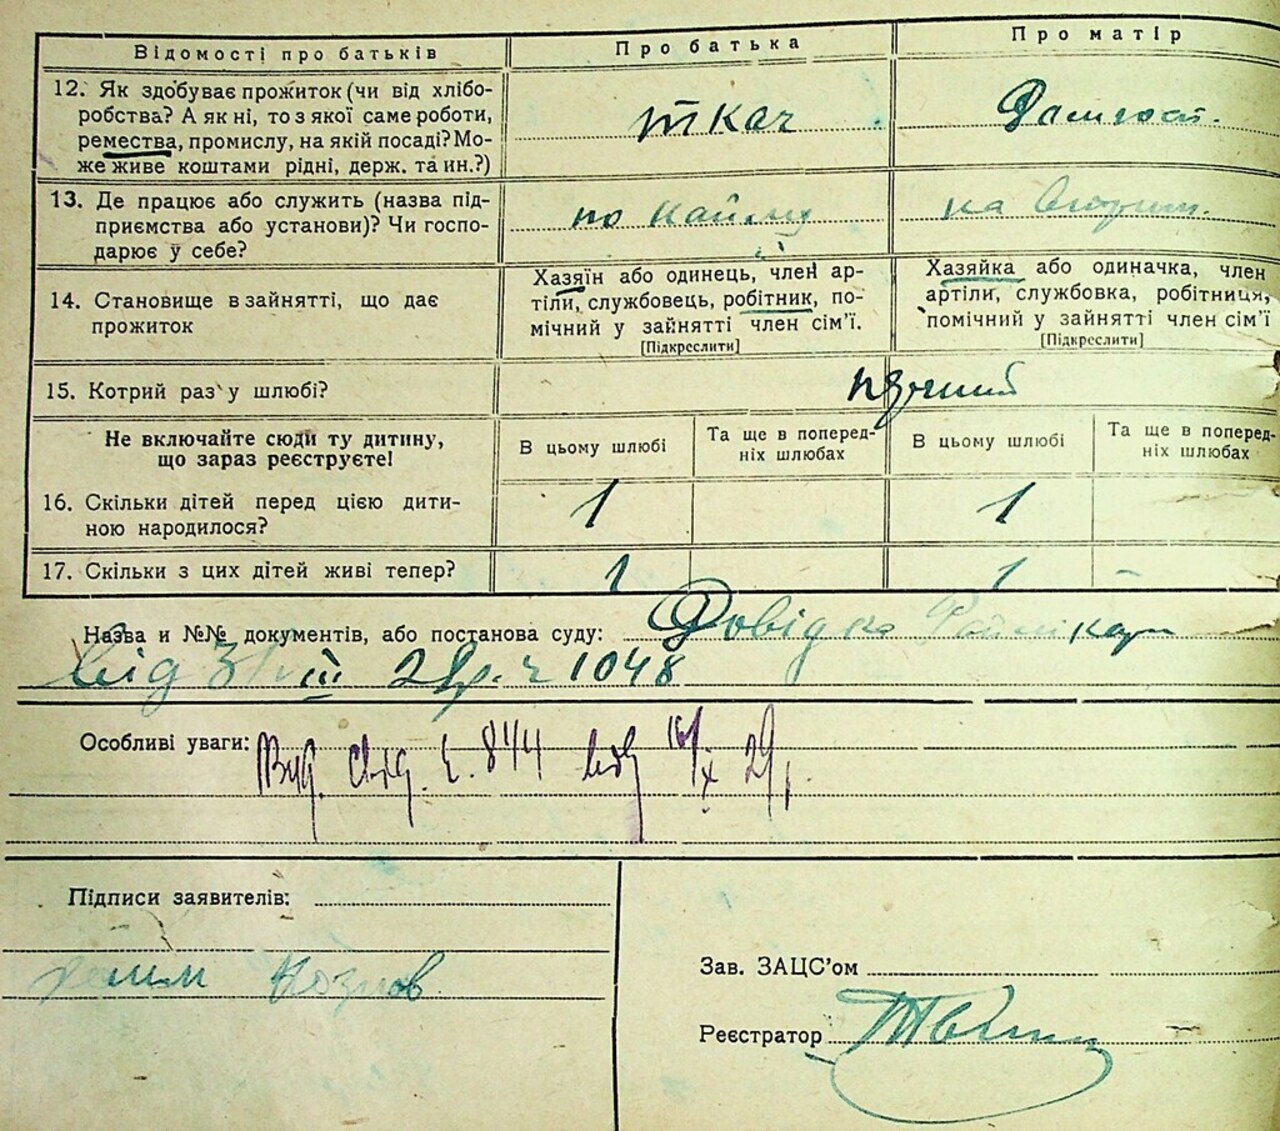 Відомості про батьків
Про батька
Про матір
12. Як здобуває прожиток (чи від хлібо-
робства? А як ні, то з якої саме роботи,
ремества, промислу, на якій посаді? Мо-
же живе коштами рідні, держ. та ин.?)
ткач
13. Де працює або служить (назва під-
приємства або установи)? Чи госпо-
дарює у себе?
по найму
на
14. Становище в зайнятті, що дає
прожиток
Хазяїн або одинець, член ар-
тіли, службовець, робітник, по-
мічний у зайнятті член сім'ї.
[Підкреслити]
Хазяйка або одиначка, член
артіли, службовка, робітниця,
помічний у зайнятті член сім'ї
[Підкреслити]
15. Котрий раз у шлюбі?
Не включайте сюди ту дитину,
що зараз реєструєте!
В цьому шлюбі
Та ще в поперед-
ніх шлюбах
В цьому шлюбі
Та ще в поперед-
ніх шлюбах
16. Скільки дітей перед цією дити-
ною народилося?
1
1
17. Скільки з цих дітей живі тепер?
1
1
–
Назва и №№ документів, або постанова суду: Довідка
від 1048
Особливі уваги: ч. 844 від 16/X 29 р.
Підписи заявителів:
Зав. ЗАЦС'ом
Реєстратор